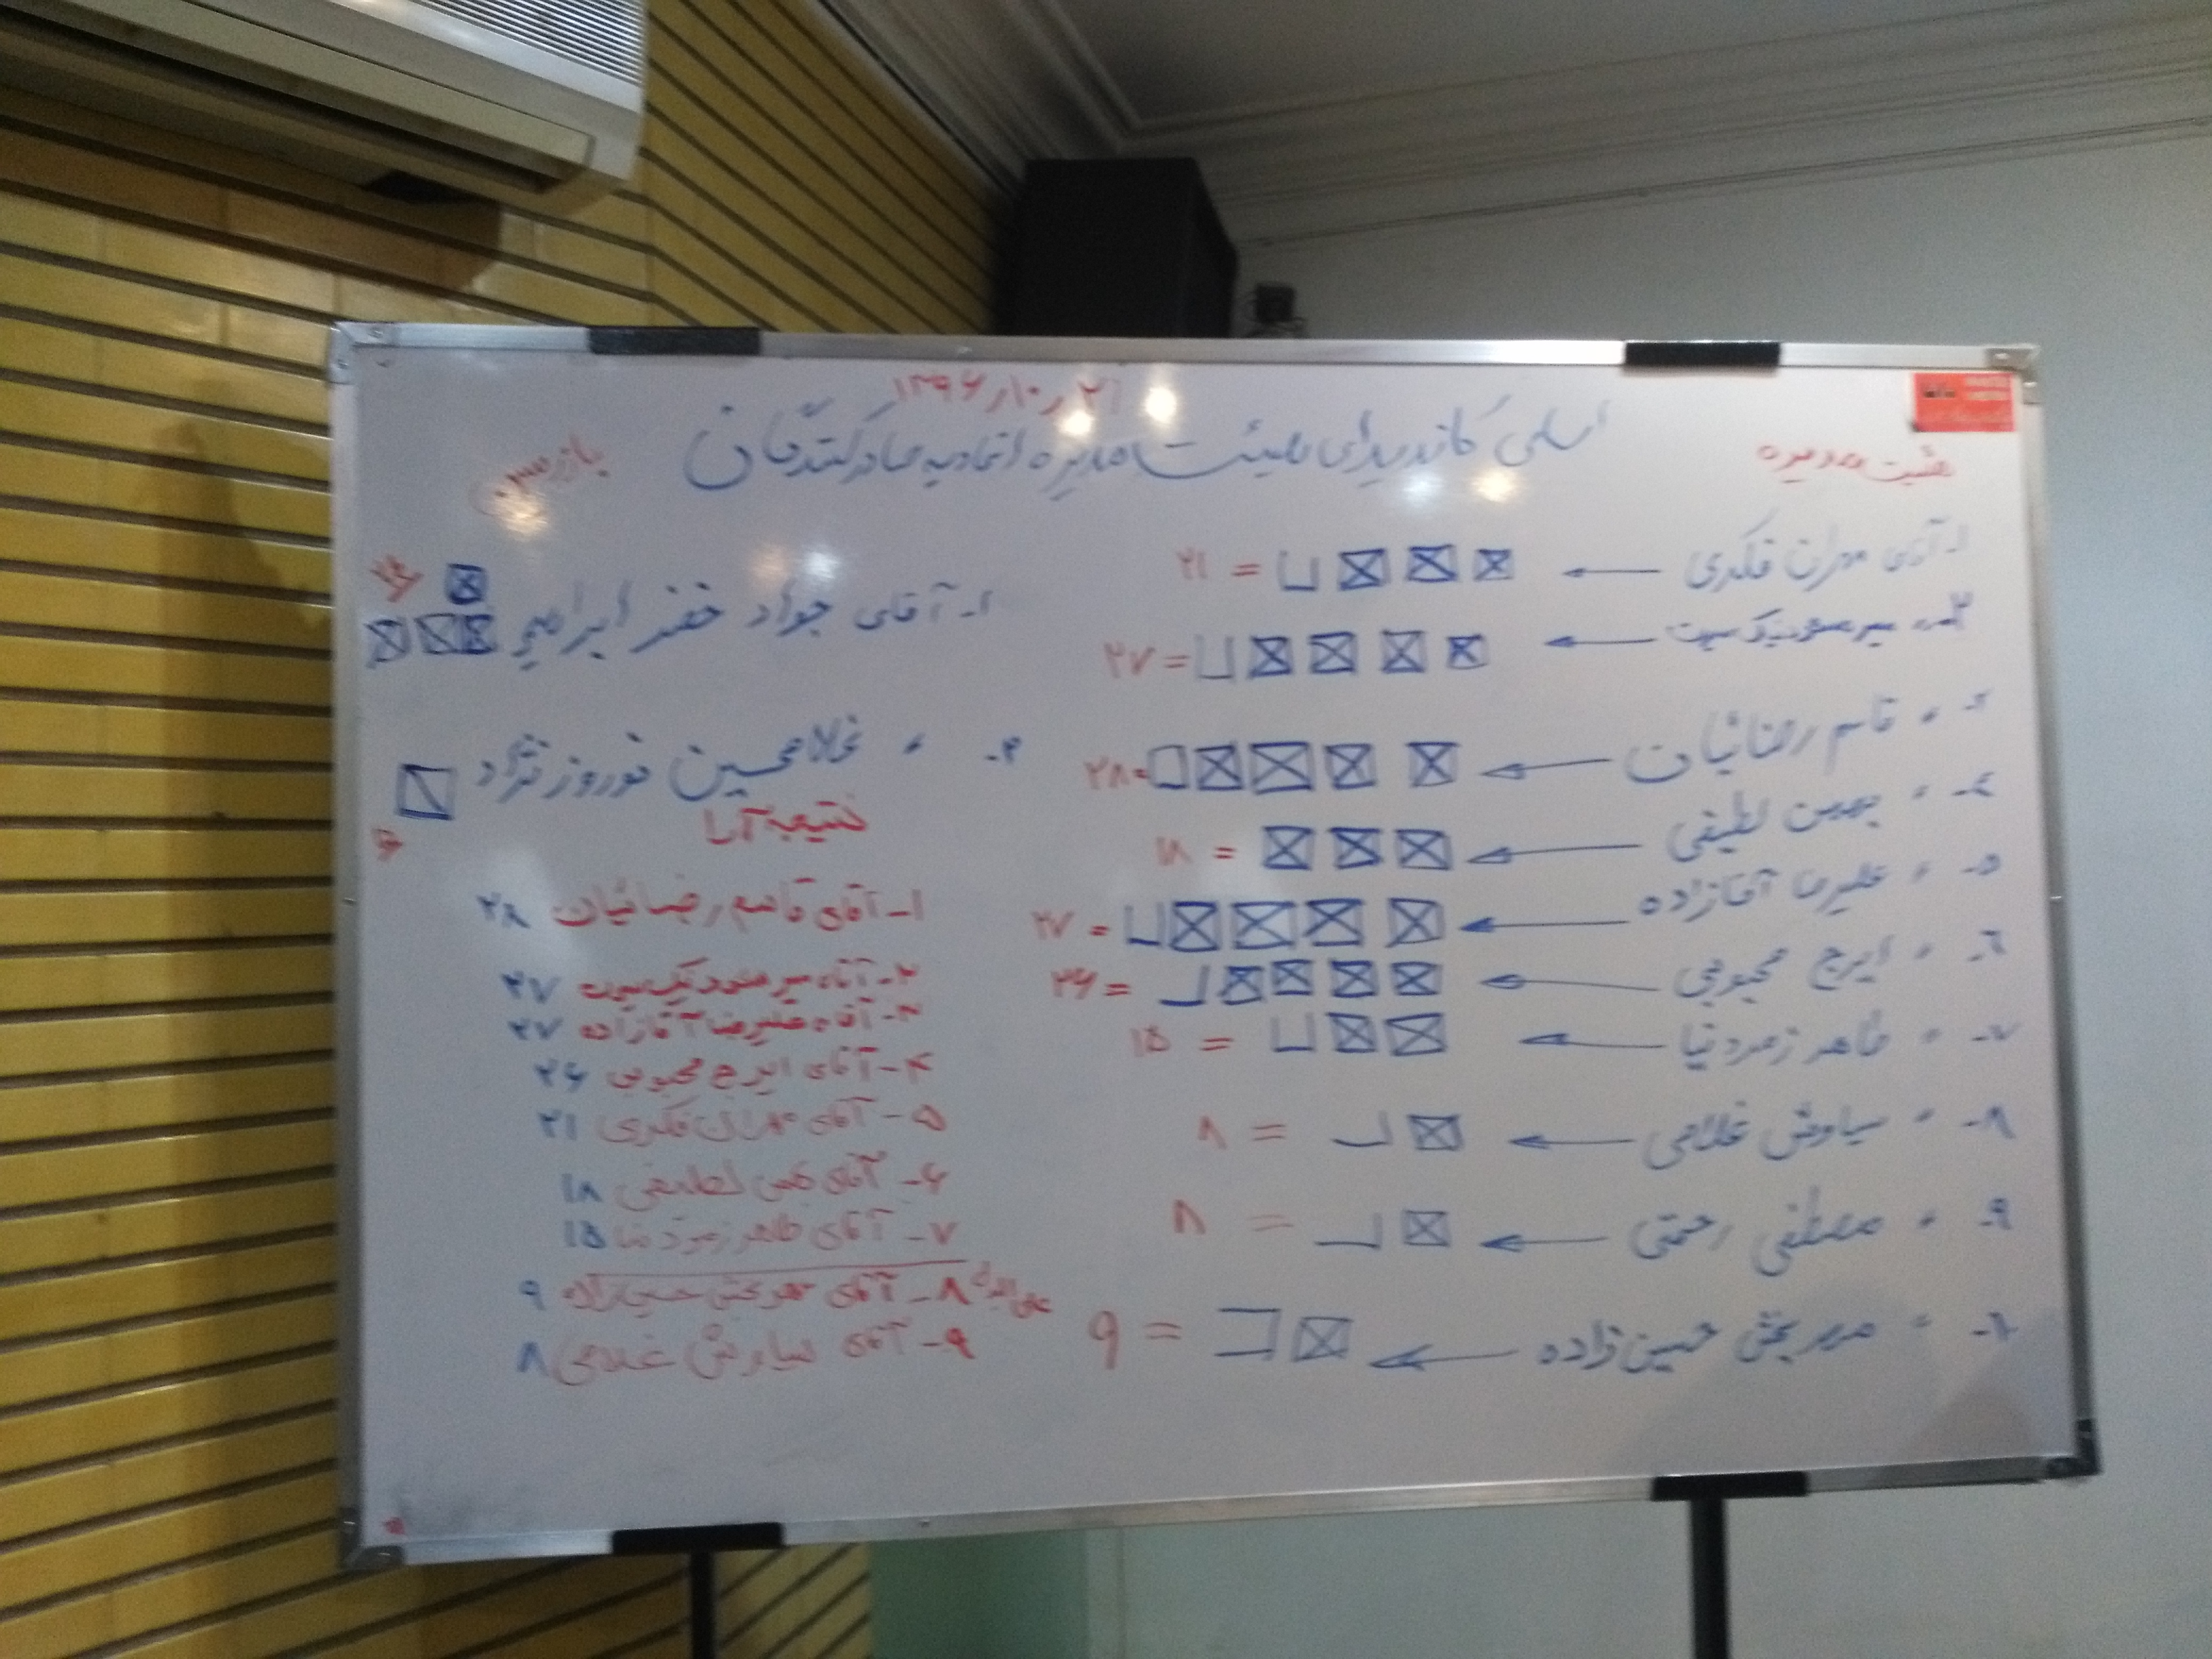 ۱۳۹۶/۱۰/۲۱
اسامی کاندیدای هیئت مدیره اتحادیه صادرکنندگان
هئیت مدیره
۱- آقای مهران فکری ۲۱ =
۲- " میر مسعود نیک سیرت ۲۷ =
" قاسم رضائیان ۲۸ =
۴- " بهمن لطیفی ۱۸ =
۵- " علیرضا آقازاده ۲۷ =
۶- " ایرج محبوبی ۲۶ =
۷- " طاهر زمردنیا ۱۵ =
۸- " سیاوش غلامی ۸ =
۹- " مصطفی رحمتی ۸ =
" حسین زاده ۹ =
بازرس
۱- آقای جواد خضر ابراهیمی
۲- " غلامحسین نوروز نژاد
نتیجه آرا
۱- آقای قاسم رضائیان ۲۸
۲- آقای میر مسعود نیک سیرت ۲۷
۳- آقای علیرضا آقازاده ۲۷
۴- آقای ایرج محبوبی ۲۶
۵- آقای مهران فکری ۲۱
۶- آقای بهمن لطیفی ۱۸
۷- آقای طاهر زمردنیا ۱۵
علی البدل ۸- آقای حسین زاده ۹
۹- آقای سیاوش غلامی ۸